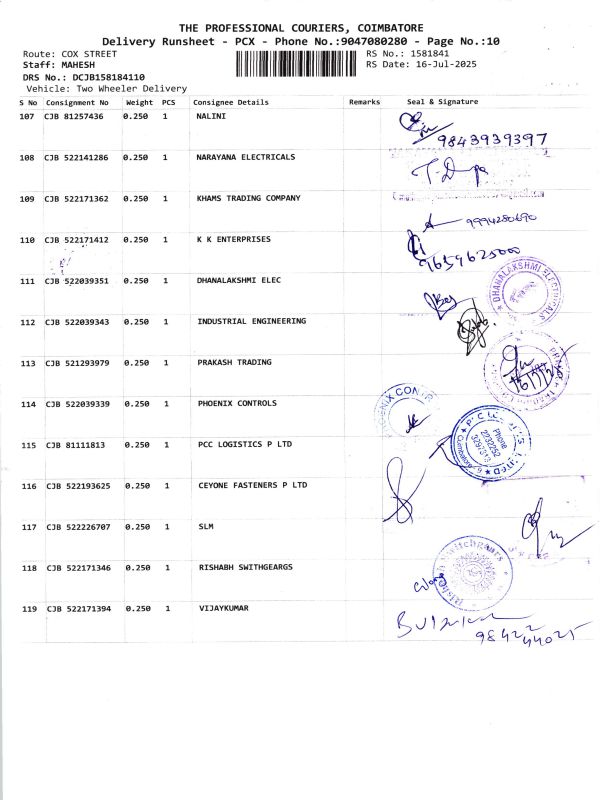 THE PROFESSIONAL COURIERS, COIMBATORE
Delivery Runsheet - PCX - Phone No.:9047080280 - Page No.:10
Route: COX STREET RS No.: 1581841
Staff: MAHESH RS Date: 16-Jul-2025
DRS No.: DCJB158184110
Vehicle: Two Wheeler Delivery
S No Consignment No Weight PCS Consignee Details Remarks Seal & Signature
107 CJB 81257436 0.250 1 NALINI
9843939397
108 CJB 522141286 0.250 1 NARAYANA ELECTRICALS
109 CJB 522171362 0.250 1 KHAMS TRADING COMPANY
9994280690
110 CJB 522171412 0.250 1 K K ENTERPRISES
111 CJB 522039351 0.250 1 DHANALAKSHMI ELEC
DHANALAKSHMI ELECTRICALS
112 CJB 522039343 0.250 1 INDUSTRIAL ENGINEERING
113 CJB 521293979 0.250 1 PRAKASH TRADING
114 CJB 522039339 0.250 1 PHOENIX CONTROLS
115 CJB 81111813 0.250 1 PCC LOGISTICS P LTD
Phone
116 CJB 522193625 0.250 1 CEYONE FASTENERS P LTD
117 CJB 522226707 0.250 1 SLM
118 CJB 522171346 0.250 1 RISHABH SWITHGEARGS
Rishabh Switchgears
119 CJB 522171394 0.250 1 VIJAYKUMAR